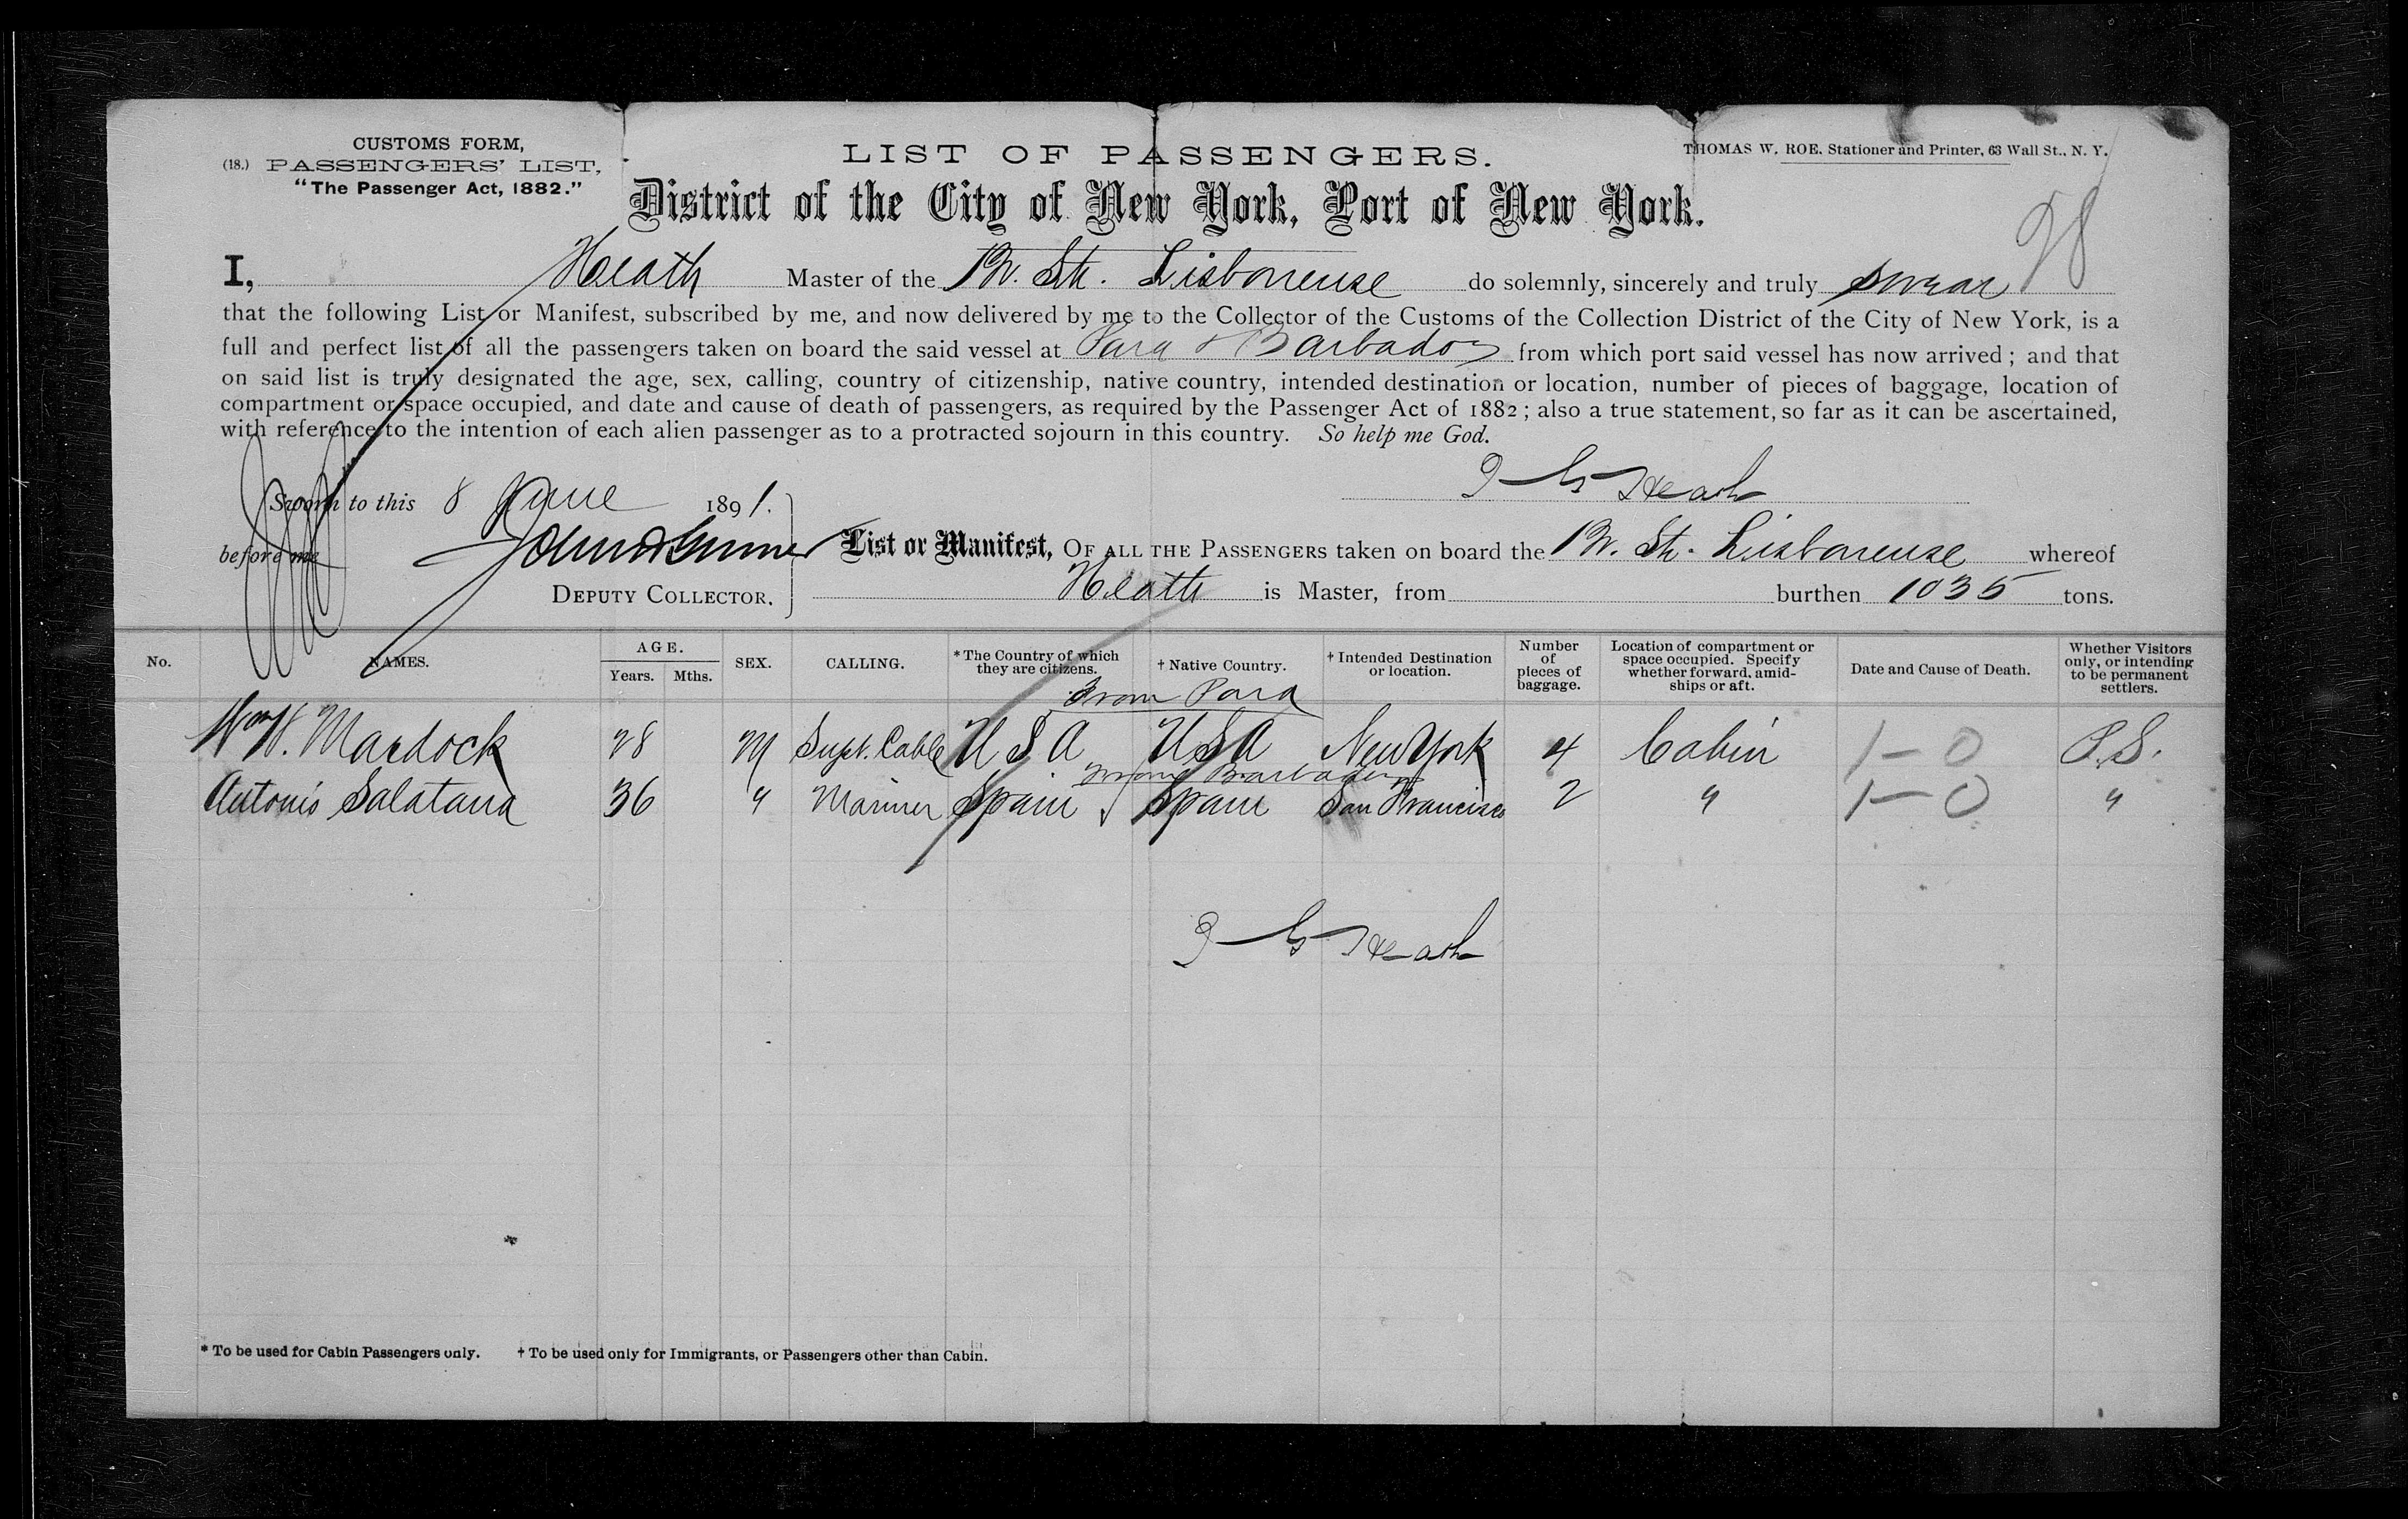 CUSTOMS FORM,
(18.) PASSENGERS' LIST,
"The Passenger Act, 1882."
LIST OF PASSENGERS.
THOMAS W. ROE. Stationer and Printer, 63 Wall St., N. Y.
District of the City of New York, Port of New York.
28
I, Heath Master of the Br. Str. Lisbonense do solemnly, sincerely and truly swear
that the following List or Manifest, subscribed by me, and now delivered by me to the Collector of the Customs of the Collection District of the City of New York, is a
full and perfect list of all the passengers taken on board the said vessel at Para & Barbados from which port said vessel has now arrived; and that
on said list is truly designated the age, sex, calling, country of citizenship, native country, intended destination or location, number of pieces of baggage, location of
compartment or space occupied, and date and cause of death of passengers, as required by the Passenger Act of 1882; also a true statement, so far as it can be ascertained,
with reference to the intention of each alien passenger as to a protracted sojourn in this country. So help me God.
Heath
Sworn to this 8 June 1891.
before me
DEPUTY COLLECTOR.
List or Manifest, OF ALL THE PASSENGERS taken on board the Br. Str. Lisbonense whereof
Heath is Master, from burthen 1035 tons.
No. NAMES. AGE. Years. Mths. SEX. CALLING. *The Country of which they are citizens. † Native Country. † Intended Destination or location. Number of pieces of baggage. Location of compartment or space occupied. Specify whether forward, amidships or aft. Date and Cause of Death. Whether Visitors only, or intending to be permanent settlers.
From Para
Wm W. Mardock 28 M Supt. Cable U S A USA New York 4 Cabin 1-0 P.S.
From Barbados
Antonio Salatana 36 " Mariner Spain Spain San Francisco 2 " 1-0 "
Heath
* To be used for Cabin Passengers only. † To be used only for Immigrants, or Passengers other than Cabin.